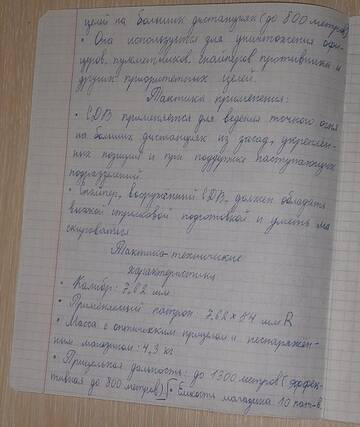 целей на больших дистанциях (до 800 метров)
• Она используется для уничтожения офи-
церов, пулеметчиков, снайперов противника и
других приоритетных целей.
Тактика применения:
• СДВ применяется для ведения точного огня
на больших дистанциях из засад, укреплен-
ных позиций и при поддержке наступающих
подразделений
• Снайпер, вооруженный СДВ, должен обладать
высокой стрелковой подготовкой и уметь ма
скироваться
Тактико-технические
характеристики
• Калибр: 7,62 мм
• Применяемый патрон: 7,62×54 мм R
• Масса с оптическим прицелом и неснаряжен-
ным магазином: 4,3 кг
• Прицельная дальность: до 1300 метров (эффек-
тивная до 800 метров) • Емкость магазина: 10 пат-в